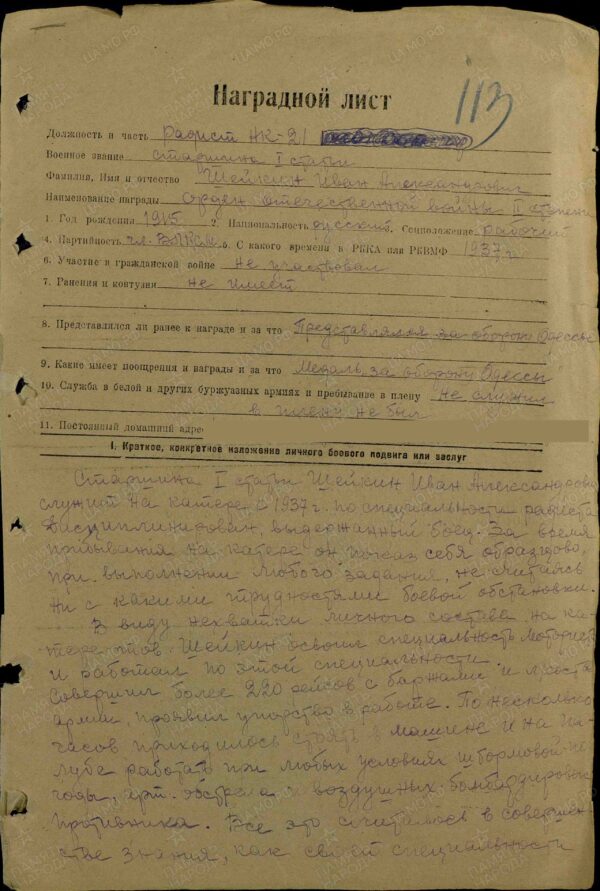 113
Наградной лист
Должность и часть радист НК-21
Военное звание старшина I статьи
Фамилия, Имя и отчество Шейкин Иван Александрович
Наименование награды орден отечественной войны II степени
1. Год рождения 1915 2. Национальность русский. Соцположение рабочий
4. Партийность чл. ВЛКСМ 5. С какого времени в РККА или РКВМФ 1937 г
6. Участие в гражданской войне не участвовал
7. Ранения и контузии не имеет
8. Представлялся ли ранее к награде и за что Представлялся за оборону Одессы
9. Какие имеет поощрения и награды и за что Медаль за оборону Одессы
10. Служба в белой и других буржуазных армиях и пребывание в плену не служил
в плену не был
11. Постоянный домашний адрес
I. Краткое, конкретное изложение личного боевого подвига или заслуг
Старшина I статьи Шейкин Иван Александрович
служит на катере с 1937 г. по специальности радиста
Дисциплинирован, выдержанный боец. За время
пребывания на катере он показ себя образцово,
при выполнении любого задания, не считаясь
ни с какими трудностями боевой обстановки.
В виду нехватки личного состава на ка-
тере тов. Шейкин освоил специальность моторист
и работал по этой специальности.
Совершил более 220 рейсов с баржами и л. соста
армии, проявил упорство в работе. По несколько
часов приходилось стоять в машине и на па-
лубе работать при любых условиях штормовой по
годы, арт. обстрела и воздушных бомбардировок
противника. Все это считалось в совершен-
стве знания, как своей специальности